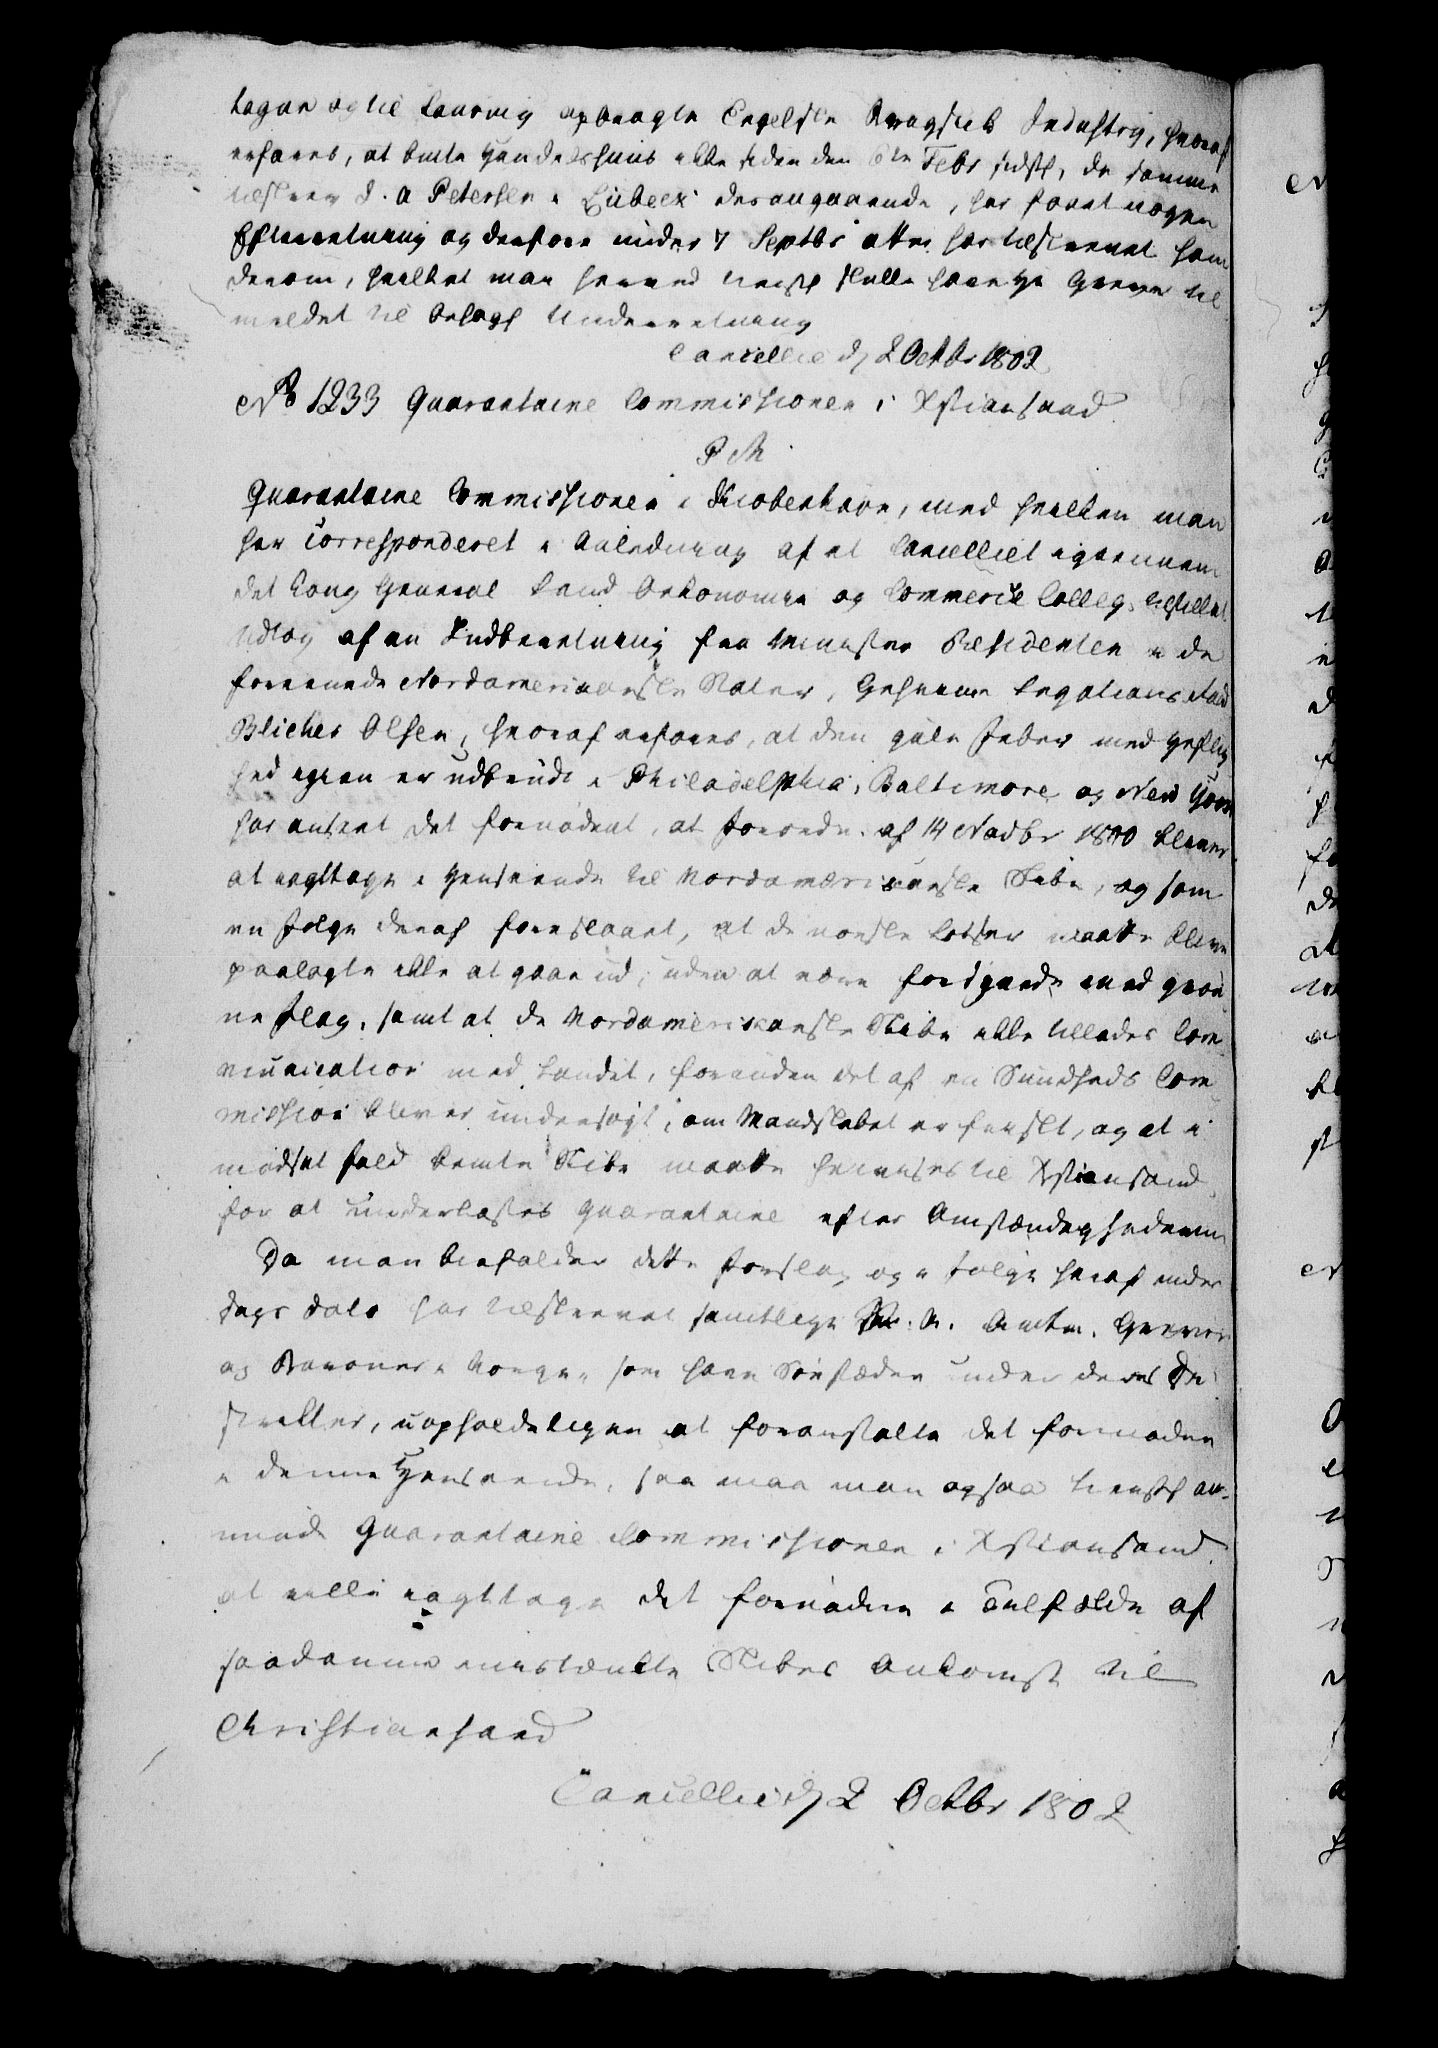 tagne og til Laurvig opbragte Engelske Kragskib Industry, hvoraf
erfares, at bemte Handelshuus ikke siden den 6te Febr sidst, da samme
tilskrev D. A Petersen i Lübeck desangaaende, har faaet nogen
Efterretning og derfore under 7 Septbr atter har tilskrevet ham
derom, hvilket man herved tienstl skulle have Hr Greven til
meldet til behagl Underretning
Cancelliet d 2 Octbr 1802
No 1233 Quarantaine Commissionen i Xstiansand
P M
Quarantaine Commissionen i Kiøbenhavn, med hvilken man
har Corresponderet i Anledning af et Cancelliet igiennem
det Kong General Land Oekonomie og Commerce Colleg. tilstillet
Udtog af en Indberetning fra Minister Residenten i de
foreenede Nordamericanske Stater, Geheime Legations Raad
Blicher Olsen, hvoraf erfares, at den gule Feber med Heftig
hed igien er udbrudt i Philadelphia, Baltimore og New York
har anseet det fornødent, at Forordn. af 14 Novbr 1800 bliver
at iagttage i Henseende til Nordamericanske Skibe, og som
en Følge deraf foreslaaet, at de norske Lodser maatte blive
paalagte ikke at gaae ud, uden at være forsynede med grøn
ne Flag, samt at de Nordamericanske Skibe ikke tillades Com
munication med Landet, forinden det af en Sundheds Com
mission bliver undersøgt, om Mandskabet er friskt, og at i
modsat Fald bemte Skibe maatte henvises til Xstiansand
for at underkastes Quarantaine efter Omstændighederne
Da man bifalder dette Forslag og i Følge heraf under
Dags Dato har tilskrevet samtlige St. A. Amtm. Grever
og Baroner i Norge, som have Søestæder under deres Di
strikter, uopholdeligen at foranstalte det fornødne
i denne Henseende, saa maa man ogsaa tienstl an
mode Quarantaine Commissionen i Xstiansand
at ville iagttage det fornødne i Tilfælde af
saadanne mistænkte Skibes Ankomst til
Christiansand
Cancelliet d 2 Octbr 1802